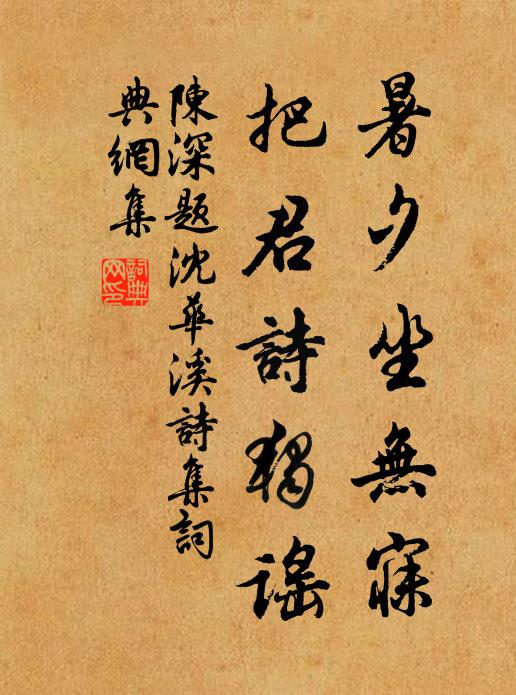 暑夕坐無寐
把君詩獨謠
陳深題沈華溪詩集詞
典網集
詞典網印